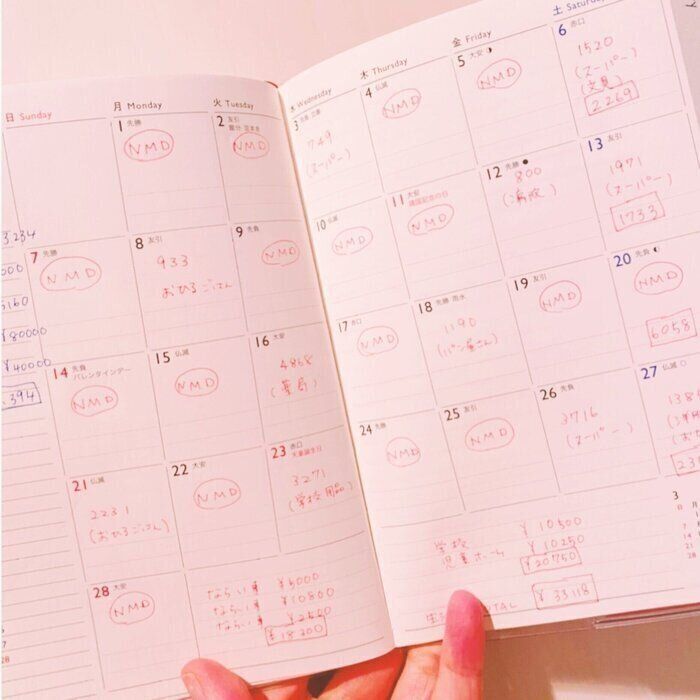 日 Sunday
月 Monday
火 Tuesday
水 Wednesday
木 Thursday
金 Friday
土 Saturday
1 先勝
NMD
2 友引
NMD
3
749
(スーパー)
4 仏滅
NMD
5 大安
NMD
6 赤口
1520
(スーパー)
2269
7 先勝
NMD
8 友引
933
おひるごはん
9 先負
NMD
10 仏滅
NMD
11 大安
建国記念の日
NMD
12 先勝
800
13 友引
1971
(スーパー)
1733
14 先負
バレンタインデー
NMD
15 仏滅
NMD
16 大安
4868
(薬局)
17 赤口
NMD
18 先勝 雨水
1190
(パン屋さん)
19 友引
NMD
20 先負
NMD
6058
21 仏滅
2231
(おひるごはん)
22 大安
NMD
23 赤口
天皇誕生日
3271
(学校用品)
24 先勝
NMD
25 友引
NMD
26 先負
3716
(スーパー)
27 仏滅
28 大安
NMD
ならい事 ¥5000
ならい事 ¥10800
ならい事 ¥2500
¥18300
学校 ¥10500
児童ホーム ¥10250
¥20750
TOTAL ¥33118
3234
¥80000
¥40000